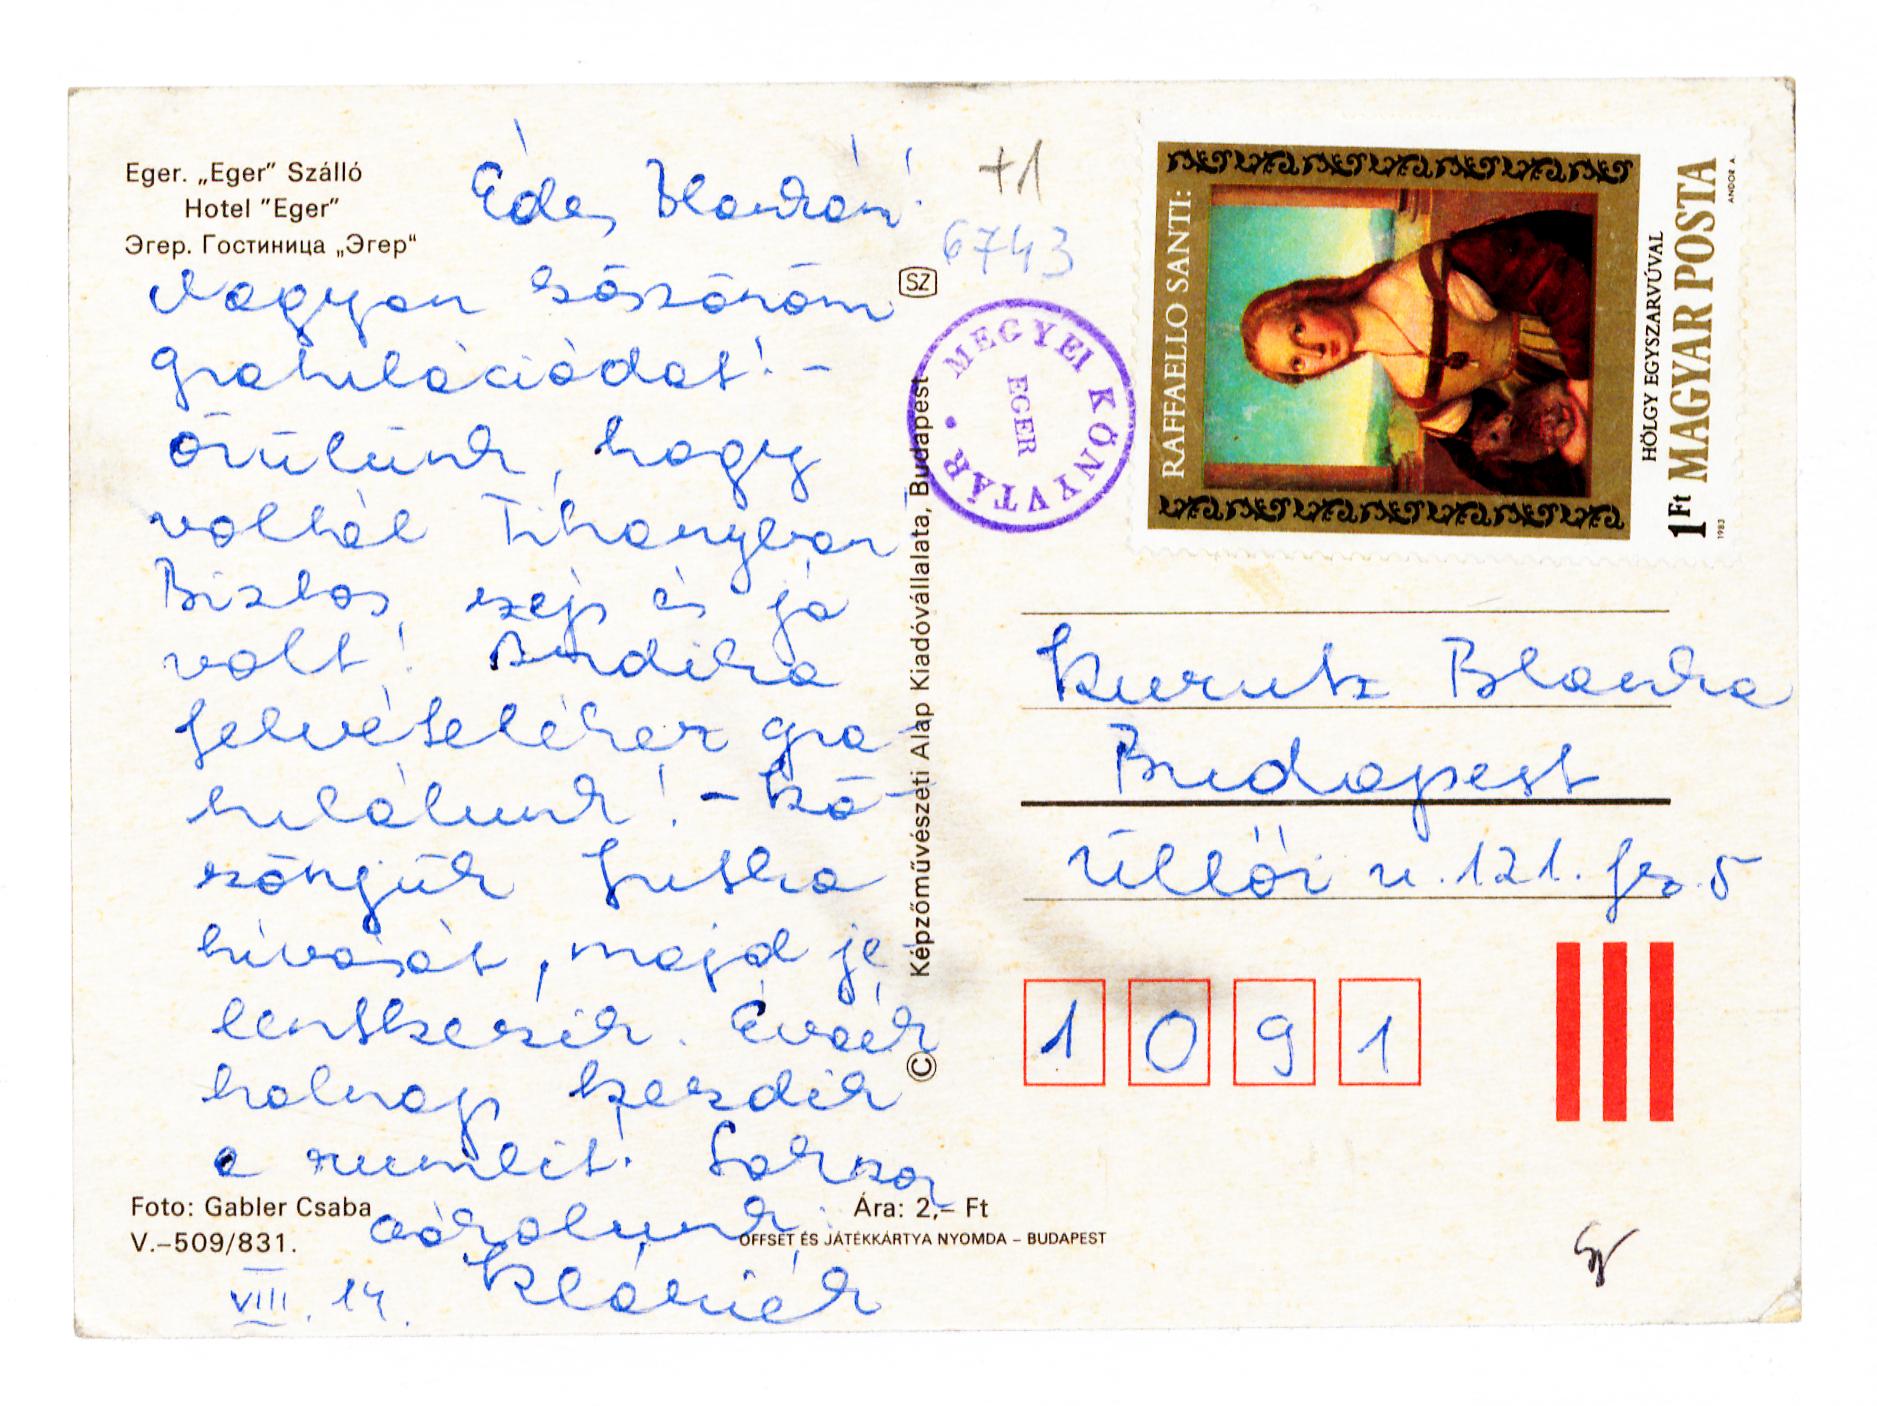 Eger. „Eger” Szálló
Hotel "Eger"
Эгер. Гостиница „Эгер“
Édes Blankám!
Nagyon köszönöm
gratulációdat! -
örülünk, hogy
voltál Tihanyban
Biztos szép és jó
volt! Andika
felvételéhez gra-
tulálunk! - Kö-
szönjük Jutka
hívását, majd je
lentkezik. Éváék
holnap kezdik
a rumlit! Sokszor
csókolunk:
Kláriék
VIII. 14.
Foto: Gabler Csaba
V.–509/831.
Ára: 2,– Ft
OFFSET ÉS JÁTÉKKÁRTYA NYOMDA – BUDAPEST
SZ
Képzőművészeti Alap Kiadóvállalata, Budapest
©
+1
6743
MEGYEI KÖNYVTÁR •
EGER
RAFFAELLO SANTI:
HÖLGY EGYSZARVÚVAL
1Ft MAGYAR POSTA
1983
ANDOR A.
Kurutz Blanka
Budapest
Üllői u. 121. fsz. 5
1 0 9 1